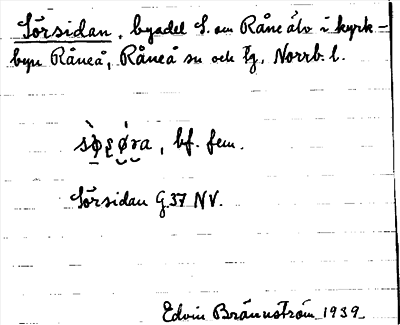 Sörsidan, byadel S. om Råne älv i kyrk-
byn Råneå, Råneå sn och tg, Norrb. l.
bf. fem.
Sörsidan G.37 NV.
Edvin Brännström 1939